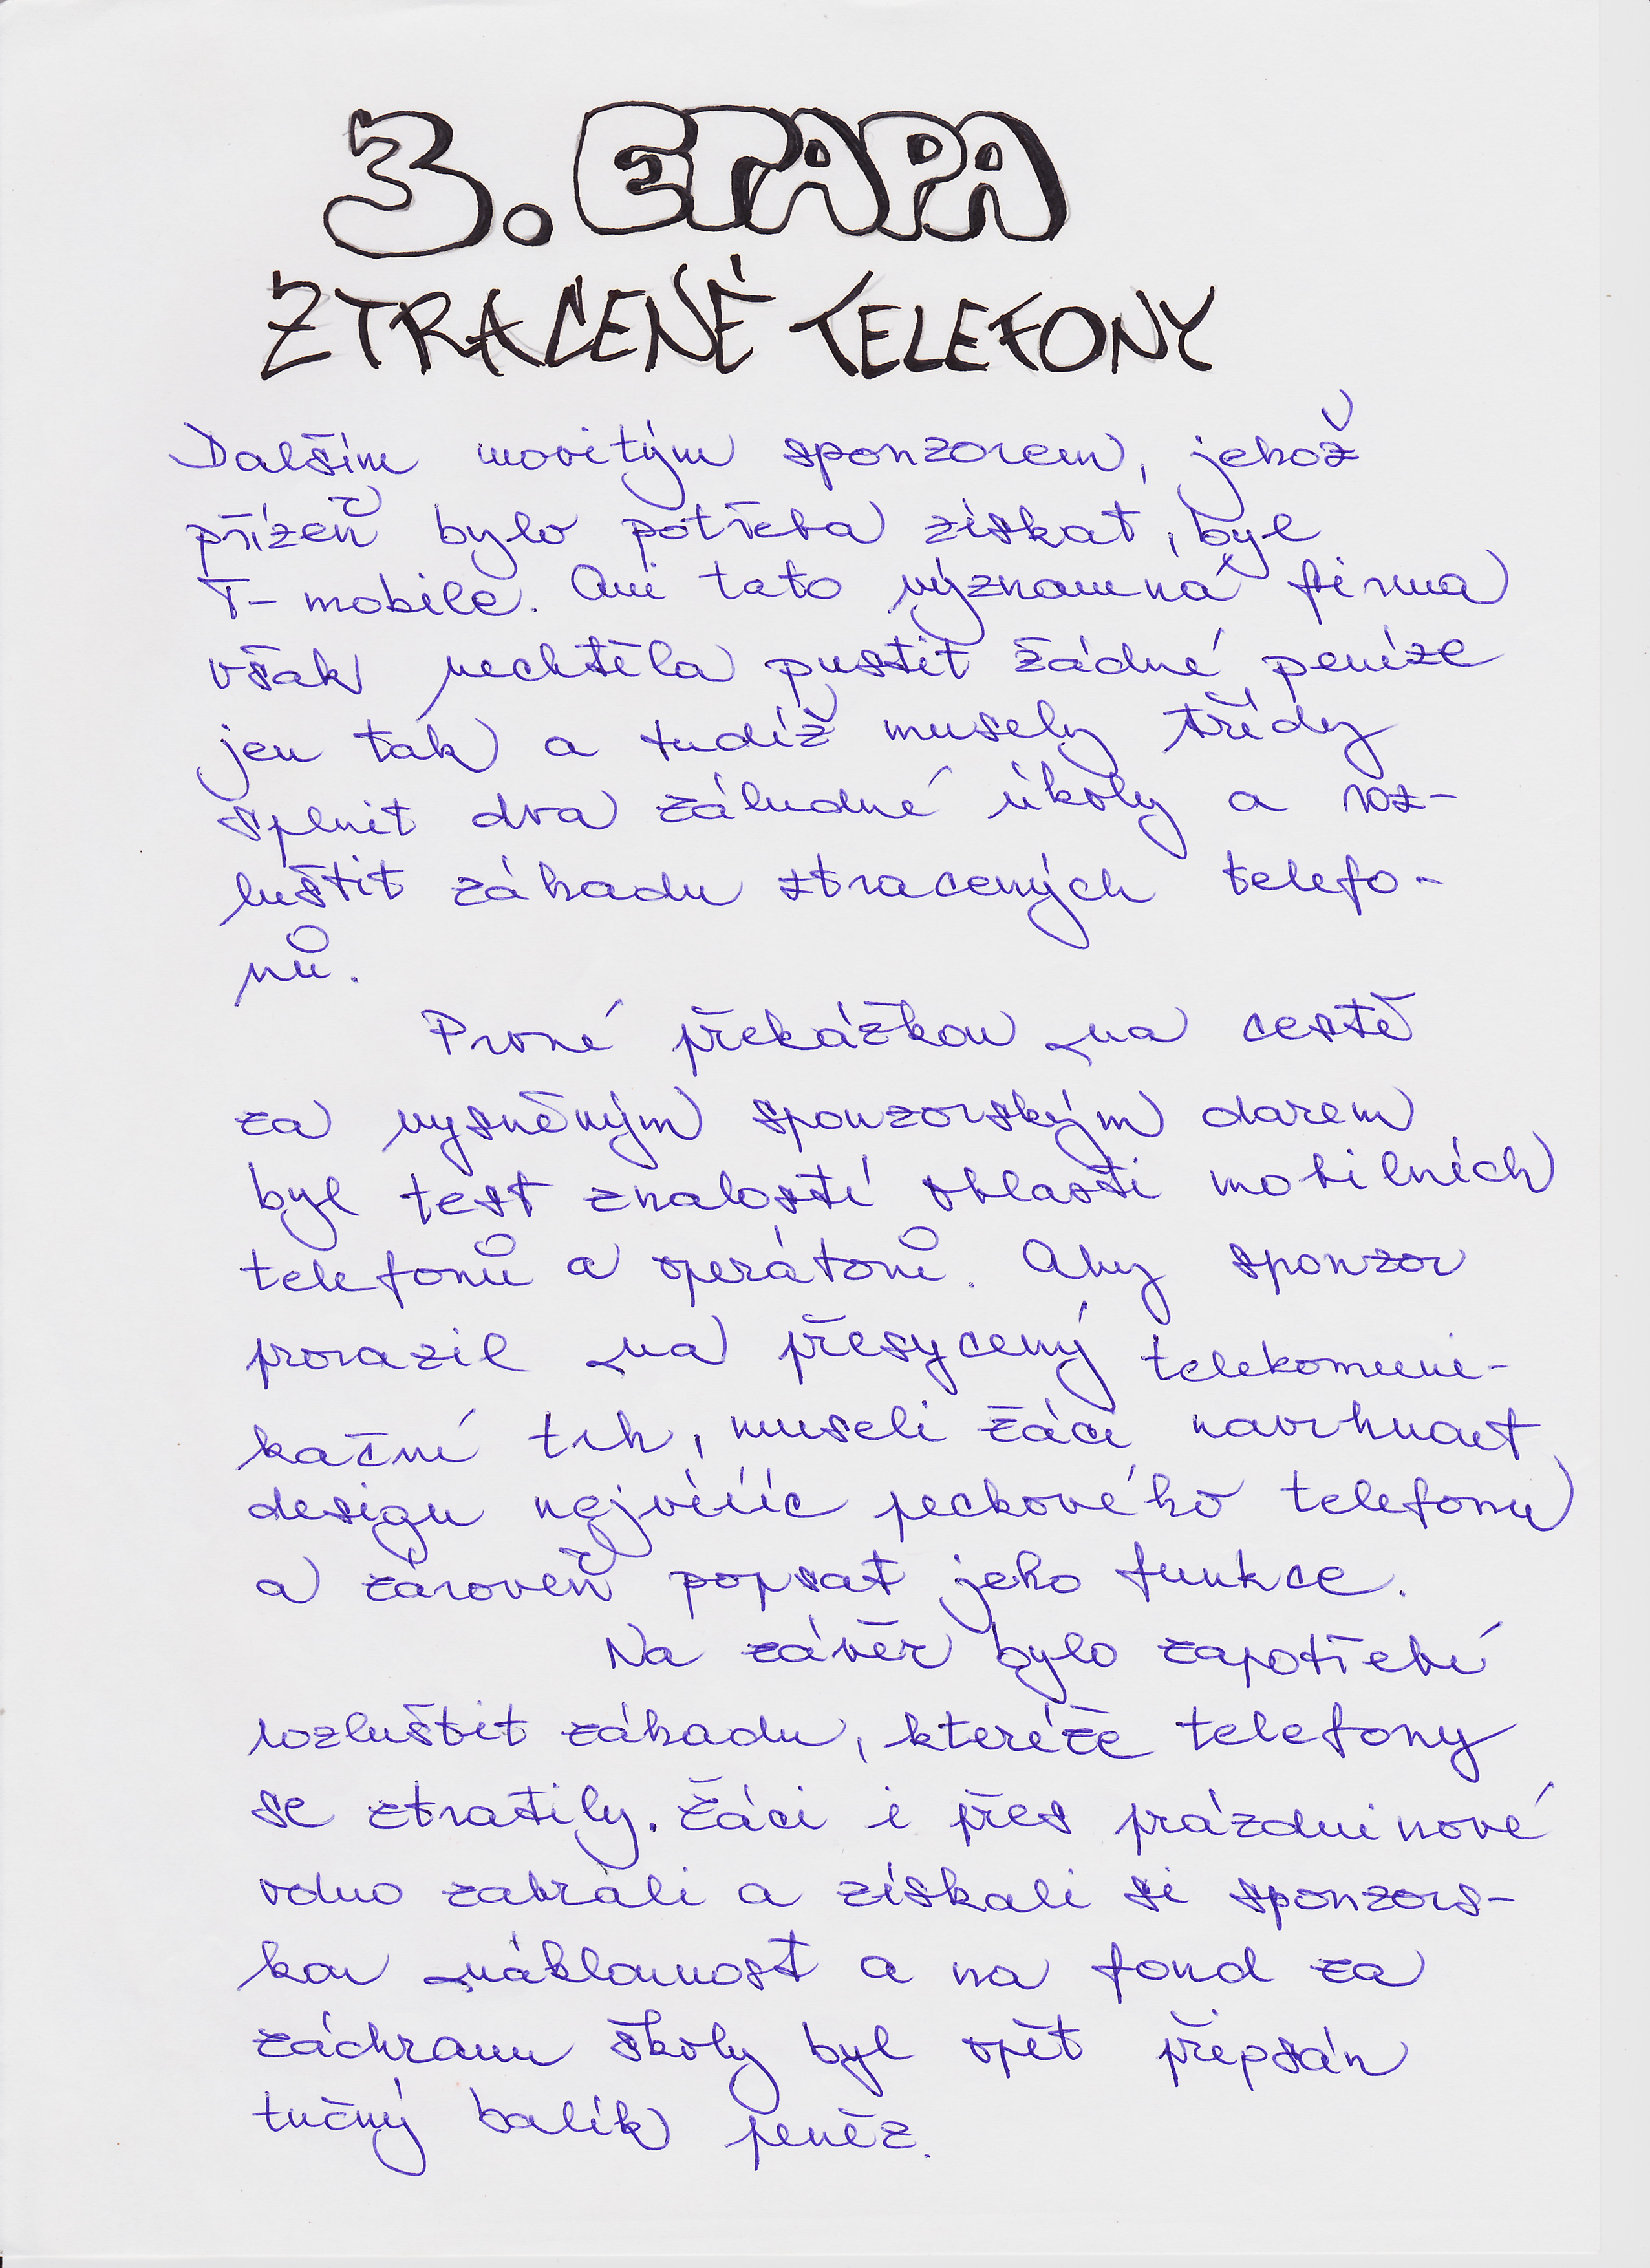 3. ETAPA
ZTRACENÉ TELEFONY
Dalším movitým sponzorem, jehož
přízeň bylo potřeba získat, byl
T-mobile. Ani tato významná firma
však nechtěla pustit žádné peníze
jen tak a tudíž musely třídy
splnit dva záludné úkoly a roz-
luštit záhadu ztracených telefo-
nů.
Prvné překážkou na cestě
za vysněným sponzorským darem
byl test znalostí oblasti mobilních
telefonů a operátorů. Aby sponzor
prorazil na přesycený telekomuni-
kační trh, museli žáci navrhnout
design nejvííc peckového telefonu
a zároveň popsat jeho funkce.
Na závěr bylo zapotřebí
rozluštit záhadu, kteréže telefony
se ztratily. Žáci i přes prázdninové
vedno zabrali a získali si sponzors-
kou náklonnost a na fond za
záchranu školy byl opět připsán
tučný balík peněz.